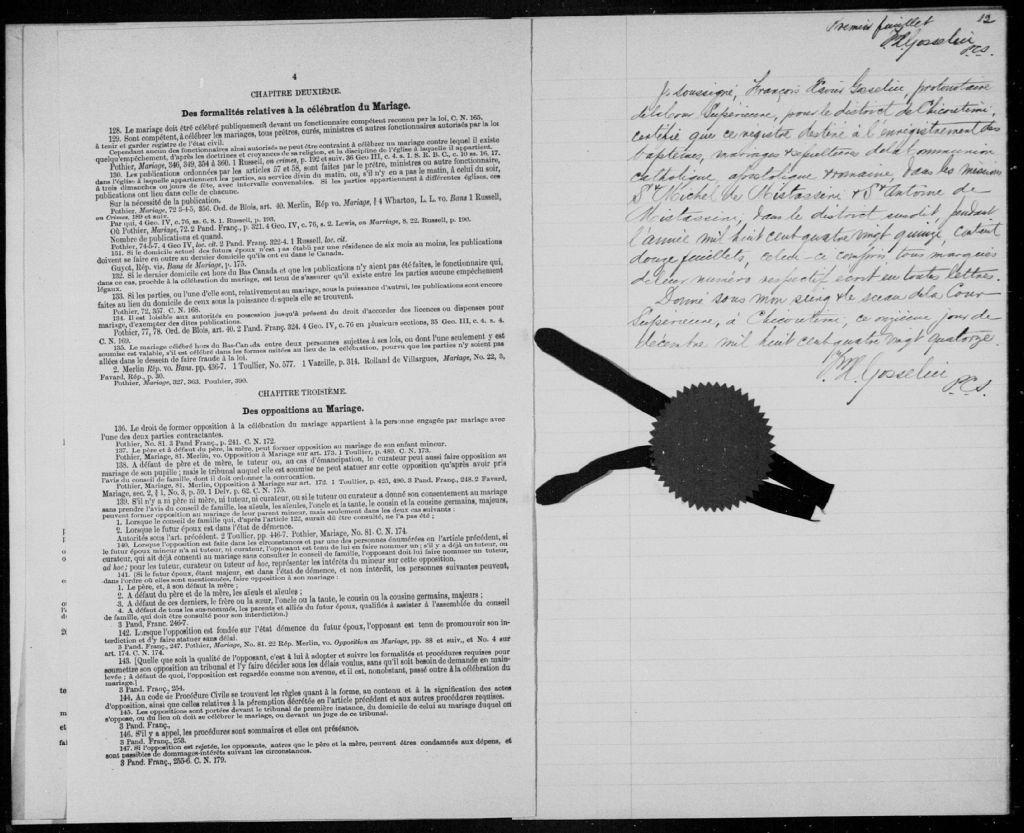 4
CHAPITRE DEUXIÈME.
Des formalités relatives à la célébration du Mariage.
128. Le mariage doit être célébré publiquement devant un fonctionnaire compétent reconnu par la loi, C. N. 165.
129. Sont compétent, à célébrer les mariages, tous prêtres, curés, ministres et autres fonctionnaires autorisés par la loi
à tenir et garder registre de l'état civil.
Cependant aucun des fonctionnaires ainsi autorisés ne peut être contraint à célébrer un mariage contre lequel il existe
quelqu'empêchement, d'après les doctrines et croyances de sa religion, et la discipline de l'église à laquelle il appartient.
Pothier, Mariage, 346, 349, 354 à 360. 1 Russell, on crimes, p. 192 et suiv. 36 Geo III, c. 4. s. 1. S. R. B. C., c. 10 ss. 16, 17.
130. Les publications ordonnées par les articles 57 et 58, sont faites par le prêtre, ministres ou autre fonctionnaire,
dans l'église à laquelle appartiennent les parties, au service divin du matin, ou, s'il n'y en a pas le matin, à celui du soir,
à trois dimanches ou jours de fête, avec intervalle convenables. Si les parties appartiennent à différentes églises, ces
publications ont lieu dans celle de chacune.
Sur la nécessité de la publication.
Pothier, Mariage, 72 3-4-5, 356. Ord. de Blois, art. 40. Merlin, Rép vo. Mariage, § 4 Wharton, L. L. vo. Bans 1 Russell,
on Crimes, 189 et suiv.
Par qui, 4 Geo. IV, c. 76, ss. 6, 8. 1. Russell, p. 193.
Où Pothier, Mariage, 72. 2 Pand. Franç., p. 321. 4 Geo. IV, c. 76, s. 2. Lewis, on Marriage, 8, 22. Russell, p. 190.
Nombre de publications et quand.
Pothier, 74-5-7. 4 Geo IV, loc. cit. 2 Pand. Franç. 322-4. 1 Russell, loc. cit.
131. Si le domicile actuel des futurs époux n'est pas établi par une résidence de six mois au moins, les publications
doivent se faire en outre au dernier domicile qu'ils ont eu dans le Canada.
Guyot, Rép. vis. Bans de Mariage, p. 175.
132. Si le dernier domicile est hors du Bas Canada et que les publications n'y aient pas été faites, le fonctionnaire qui,
dans ce cas, procède à la célébration du mariage, est tenu de s'assurer qu'il existe entre les parties aucune empêchement
légaux.
133. Si les parties, ou l'une d'elle sont, relativement au mariage, sous la puissance d'autrui, les publications sont encore
faites au lieu du domicile de ceux sous la puisance desquels elle se trouvent.
Pothier, 72, 357. C. N. 168.
134. Il est loisible aux autorités en possession jusqu'à présent du droit d'accorder des licences ou dispenses pour
mariage, d'exempter des dites publications.
Pothier, 77, 78. Ord. de Blois, art. 40. 2 Pand. Franç. 324. 4 Geo. IV, c. 76 en plusieurs sections, 35 Geo. III, c. 4. s. 4.
C. N. 169.
135. Le mariage célébré hors du Bas-Canada entre deux personnes sujettes à ses lois, ou dont l'une seulement y est
soumise est valable, s'il est célébré dans les formes usitées au lieu de la célébration, pourvu que les parties n'y soient pas
allées dans le dessein de faire fraude à la loi.
2. Merlin Rép. vo. Bans. pp. 436-7. 1 Toullier, No. 577. 1 Vazeille, p. 314. Rolland de Villargues, Mariage, No. 22, 3,
Favard, Rép., p. 30.
Pothier, Mariage, 327, 363. Pouhier, 390.
CHAPITRE TROISIÈME.
Des oppositions au Mariage.
136. Le droit de former opposition à la célébration du mariage appartient à la personne engagée par mariage avec
l'une des deux parties contractantes.
Pothier, No. 81. 3 Pand Franç., p. 241. C. N. 172.
137. Le père et à défaut du père, la mère, peut former opposition au mariage de son enfant mineur.
Pothier, Mariage, 81. Merlin, vo. Opposition à Mariage sur art. 173. 1 Toullier, p. 489. C. N. 173.
138. A défaut de père et de mère, le tuteur ou, au cas d'émancipation, le curateur peut aussi faire opposition au
mariage de son pupille; mais le tribunal auquel elle est soumise ne peut statuer sur cette opposition qu'après avoir pris
l'avis du conseil de famille, dont il doit ordonner la convocation.
Pothier, Mariage, 81. Merlin, Opposition à Mariage sur art. 172. 1 Toullier, p. 425, 490. 3 Pand. Franç., 248. 2 Favard,
Mariage, sec. 2, § 1, No. 3, p. 59. 1 Delv. p. 62. C. N. 175.
139. S'il n'y a ni père ni mère, ni tuteur, ni curateur, ou si le tuteur ou curateur a donné son consentement au mariage
sans prendre l'avis du conseil de famille, les aïeuls, les aïeules, l'oncle et la tante, le cousin et la cousine germains, majeurs,
peuvent former opposition au mariage de leur parent mineur, mais seulement dans les deux cas suivants :
1. Lorsque le conseil de famille qui, d'après l'article 122, aurait dû être consulté, ne l'a pas été ;
2. Lorsque le futur époux est dans l'état de démence.
Autorités sous l'art. précédent. 2 Toullier, pp. 446-7. Pothier, Mariage, No. 81. C. N. 174.
140. Lorsque l'opposition est faite dans les circonstances et par une des personnes énumérées en l'article précédent, si
le futur époux mineur n'a ni tuteur, ni curateur, l'opposant est tenu de lui en faire nommer un; s'il y a déjà un tuteur, ou
curateur, qui ait déjà consenti au mariage sans consulter le conseil de famille, l'opposant doit lui faire nommer un tuteur,
ad hoc; pour les tuteur, curateur ou tuteur ad hoc, représenter les intérêts du mineur sur cette opposition.
141. (Si le futur époux, étant majeur, est dans l'état de démence, et non interdit, les personnes suivantes peuvent,
dans l'ordre où elles sont mentionnées, faire opposition à son mariage :
1. Le père, et, à son défaut la mère ;
2. A défaut du père et de la mère, les aïeuls et aïeules ;
3. A défaut de ces derniers, le frère ou la sœur, l'oncle ou la tante, le cousin ou la cousine germains, majeurs ;
4. A défaut de tous les sus-nommés, les parents et alliés du futur époux, qualifiés à assister à l'assemblée du conseil
de famille, qui doit être consulté pour son interdiction.)
3 Pand, Franc. 246-7.
142. Lorsque l'opposition est fondée sur l'état démence du futur époux, l'opposant est tenu de promouvoir son in-
terdiction et d'y faire statuer sans délai.
3 Pand. Franç., 247. Pothier, Mariage, No. 81. 22 Rép. Merlin, vo. Opposition au Mariage, pp. 88 et suiv., et No. 4 sur
art. 174. C. N. 174.
143. [Quelle que soit la qualité de l'opposant, c'est à lui à adopter et suivre les formalités et procédures requises pour
soumettre son opposition au tribunal et l'y faire décider sous les délais voulus, sans qu'il soit besoin de demande en main-
levée ; à défaut de quoi, l'opposition est regardée comme non avenue, et il est, nonobstant, passé outre à la célébration du
mariage.]
3 Pand. Franç., 254.
144. Au code de Procédure Civile se trouvent les règles quant à la forme, au contenu et à la signification des actes
d'opposition, ainsi que celles relatives à la péremption décrétée en l'article précédent et aux autres procédures requises.
145. Les oppositions sont portées devant le tribunal de première instance, du domicile de celui au mariage duquel on
s'oppose, ou du lieu où doit se célébrer le mariage, ou devant un juge de ce tribunal.
3 Pand. Franç.,
146. S'il y a appel, les procédures sont sommaires et elles ont préséance.
3 Pand. Franç., 253.
147. Si l'opposition est rejetée, les opposants, autres que le père et la mère, peuvent êtres condamnés aux dépens, et
sont passibles de dommages-intérêts suivant les circonstances.
3 Pand. Franç., 255-6. C. N. 179.
12
Premier feuillet
F. X. Gosselin
P.C.S.
Je soussigné, François Xavier Gosselin, protonotaire
de la Cour Supérieure, pour le district de Chicoutimi,
certifie que ce registre destiné à l'enregistrement des
baptêmes, mariages & sépultures de la Communion
catholique, apostolique & romaine, dans les missions
St Michel de Mistassini & St Antoine de
Mistassini, dans le district susdit, pendant
l'année mil huit cent quatre vingt quinze, contient
douze feuillets, celui-ci compris, tous marqués
de leur numéro respectif écrit en toutes lettres.
Donné sous mon seing & le sceau de la Cour
Supérieure, à Chicoutimi, ce onzième jour de
décembre mil huit cent quatre vingt quatorze.
F. X. Gosselin
P.C.S.